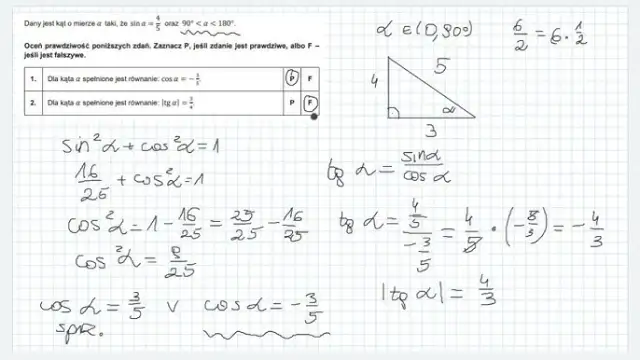 Dany jest kąt o mierze α taki, że sin α = 4/5 oraz 90° < α < 180°.
Oceń prawdziwość poniższych zdań. Zaznacz P, jeśli zdanie jest prawdziwe, albo F –
jeśli jest fałszywe.
1. Dla kąta α spełnione jest równanie: cos α = −3/5 P F
2. Dla kąta α spełnione jest równanie: |tg α| = P F
α ∈ (0, 90°)
6/2 = 6 · 1/2
4 5 α 3
sin²α + cos²α = 1
16/25 + cos²α = 1
cos²α = 1 − 16/25 = 25/25 − 16/25
cos²α = 9/25
cos α = 3/5 ∨ cos α = −3/5
sprz.
tg α = sinα/cosα
tg α = 4/5 / −3/5 = 4/5 · (−5/3) = −4/3
|tg α| = 4/3